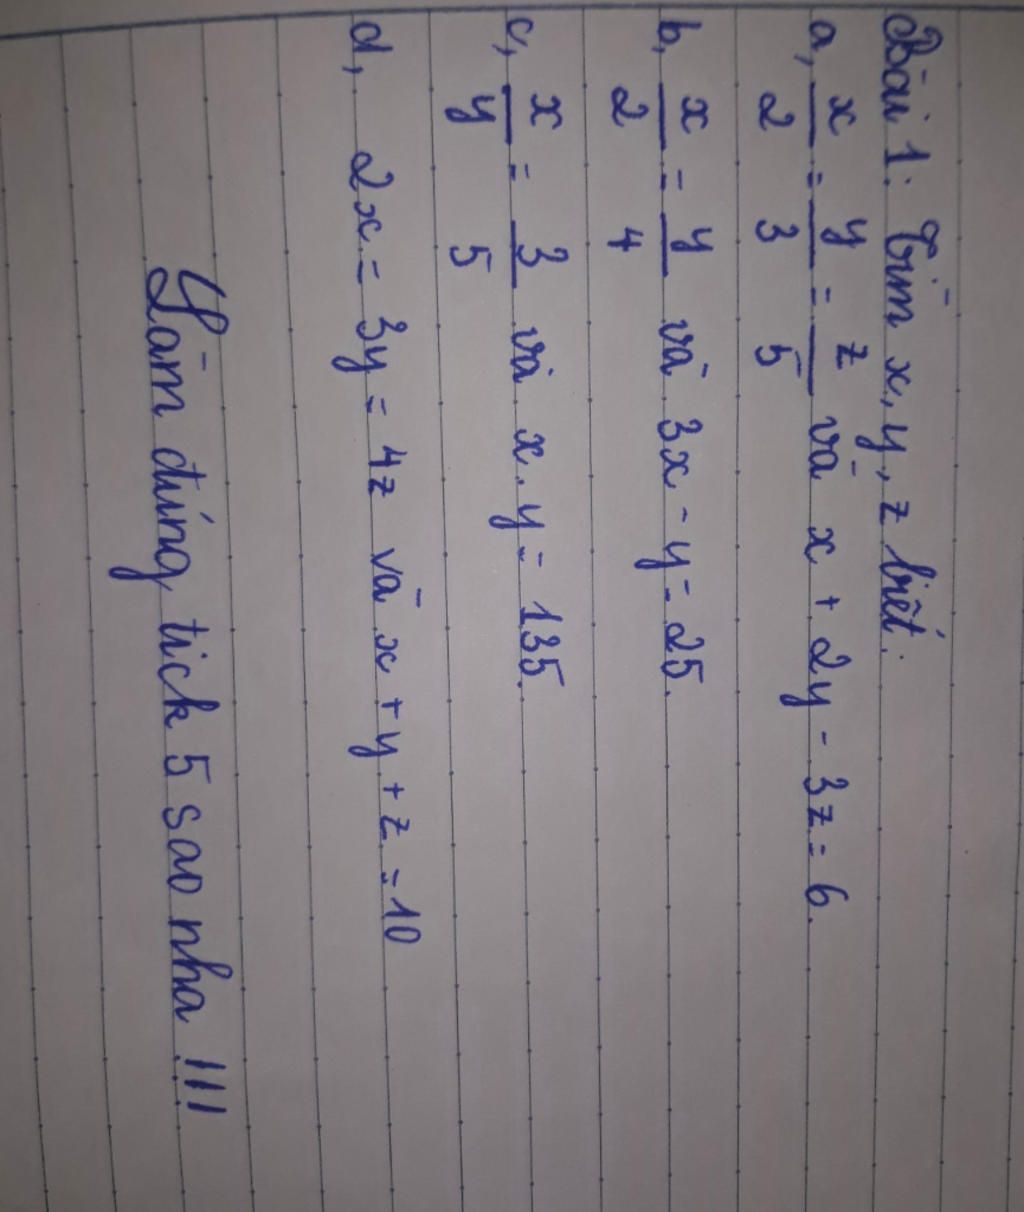 Bài 1: Tìm x, y, z biết:
a, x/2 = y/3 = z/5 và x + 2y - 3z = 6.
b, x/2 = y/4 và 3x - y = 25.
c, x/y = 3/5 và x.y = 135.
d, 2x = 3y = 4z và x + y + z = 10
Làm đúng, tick 5 sao nha !!!